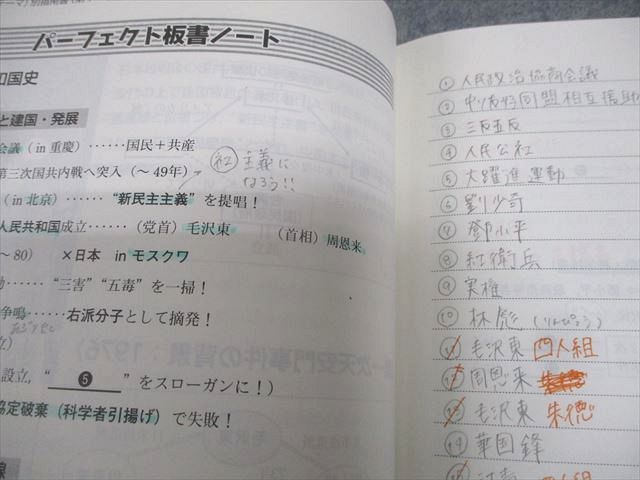 パーフェクト板書ノート
和国史
と建国・発展
会議（in 重慶）……国民＋共産
第三次国共内戦へ突入（～49年）
㊓主義に
なろう!!
（in 北京）……“新民主主義”を提唱！
人民共和国成立……（党首）毛沢東　（首相）周恩来
～80）　×日本　in モスクワ
“三害”“五毒”を一掃！
争鳴……右派分子として摘発！
設立，“　❺　”をスローガンに！）
協定破棄（科学者引揚げ）で失敗！
① 人民政治協商会議
② 中ソ友好同盟相互援助
③ 三反五反
④ 人民公社
⑤ 大躍進運動
⑥ 劉少奇
⑦ 鄧小平
⑧ 紅衛兵
⑨ 実権
⑩ 林彪（りんぴょう）
⑪ 毛沢東 四人組
⑫ 周恩来
⑬ 毛沢東 朱徳
⑭ 華国鋒